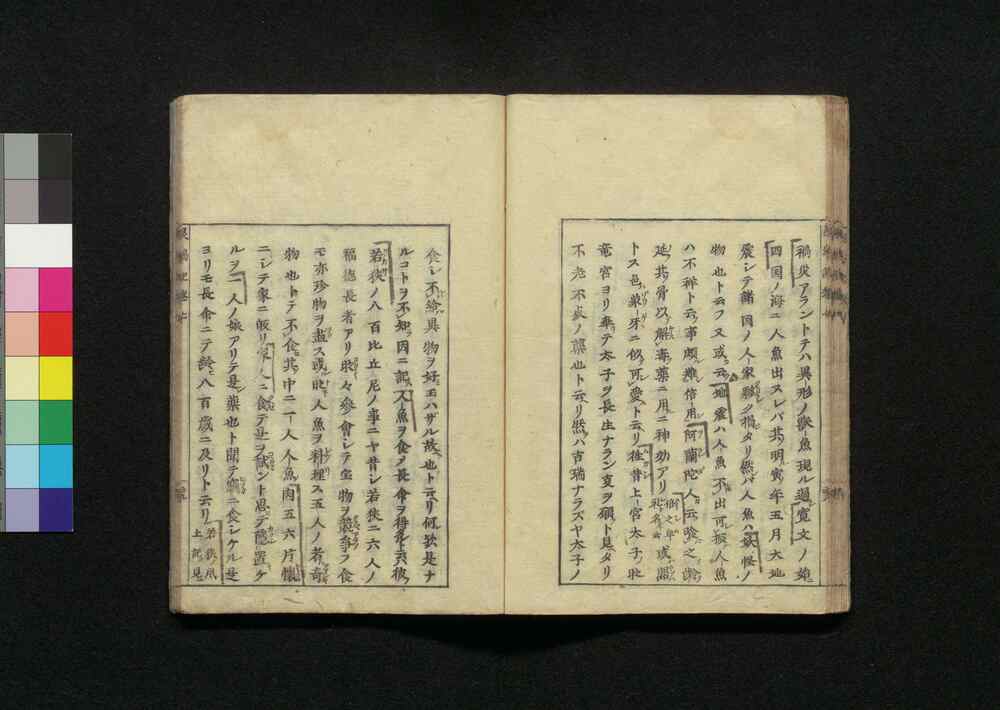 禍災アラントテハ異形ノ獣魚現ル過寛文ノ始
四国ノ海ニ人魚出スレバ其明寅年五月大地
震シテ諸国ノ人家夥ク損タリ然バ人魚ハ妖怪ノ
物也ト云フ又或云地震ハ人魚不出可猴人魚
ハ不祥ト云事頗難信用阿蘭陀人云啖之齢
延其骨以解毒薬ニ用ニ神効アリ
トス色象牙ニ似可愛ト云リ往昔上宮太子
竜宮ヨリ奉テ太子ヲ長生ナラン支ヲ願ト見タリ
不老不死ノ薬也ト云リ然ハ吉瑞ナラズヤ太子ノ
食シ不給異物ヲ好玉ハザル故也ト云リ何歟是ナ
ルコトヲ不知因ニ記人魚ヲ食メ長命ヲ得ルト云彼
若狭ノ八百比丘尼ノ事ニヤ昔シ若狭ニ六人ノ
福徳長者アリ時々参會シテ宝物ヲ競争フ食
モ亦珍物ヲ盡ス或時人魚ヲ料理ス五人ノ者奇
物也トテ不食其中ニ一人人魚肉五六片懐
ニシテ家ニ皈リ家人ニ食テ是ヲ試ント思テ隠置ケ
ルヲ一人ノ娘アリテ是薬也ト聞テ窃ニ食シケル是
ヨリモ長命ニテ齢八百歳ニ及リト云リ若狭風
土記見